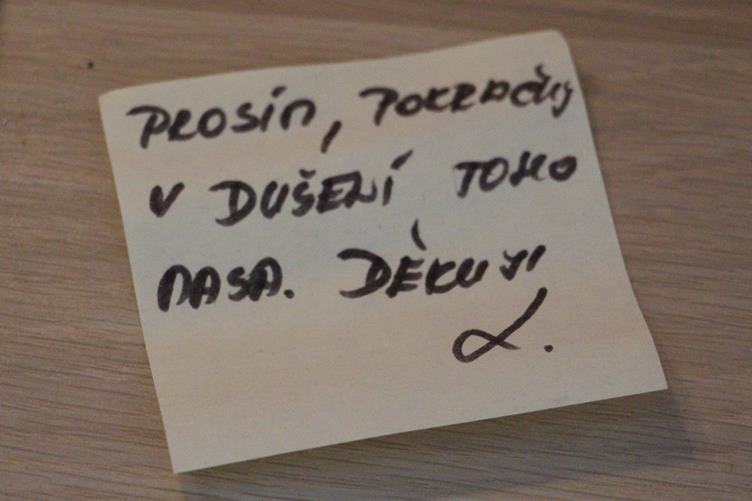 PROSÍM, POKRAČUJ
V DUŠENÍ TOHO
MASA. DĚKUJI
L.